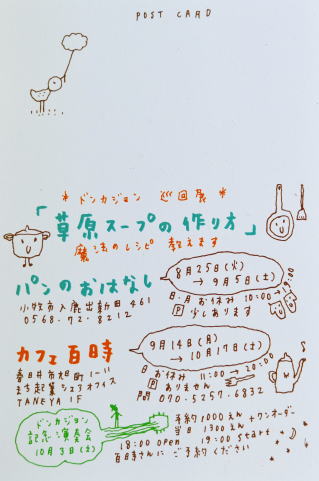 POST CARD
*ドンカジョン 巡回展*
「草原スープの作り方」
魔法のレシピ 教えます
パンのおはなし
小牧市入鹿出新田 461
0568-72-8212
8月25日(火)
→ 9月5日(土)
日・月 お休み 10:00→19:00
P 少しあります
カフェ百時
春日井市旭町1-11
まち起業シェアオフィス
TANEYA 1F
9月14日(月)
→ 10月17日(土)
日 お休み 11:00→20:00
P ありません
問 070-5257-6832
ドンカジョン
記念演奏会
10月3日(土)
予約1000えん +ワンオーダー
当日 1300えん
18:00 open 19:00 start
百時さんに ご予約ください